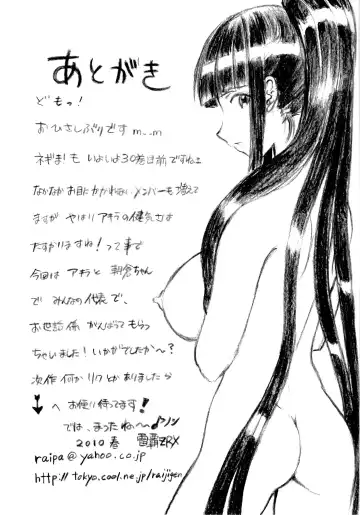 あとがき
どもっ!
おひさしぶりです m__m
ネギま!も いよいよ30巻目前ですねェ
なかなかお目にかかれないメンバーも増えて
ますが やはり アキラの健気さは
たすかりますね!って事で
今回は アキラと 朝倉ちゃん
で みんなの代表で、
お世話係 がんばってもらっ
ちゃいました!いかがでしたか〜?
次作 何か リクとかありましたら
↓へ お便り待ってます!
では、まったね〜♪ノシ
2010 春 雷覇ZRX
raipa@yahoo.co.jp
http://tokyo.cool.ne.jp/raijigen